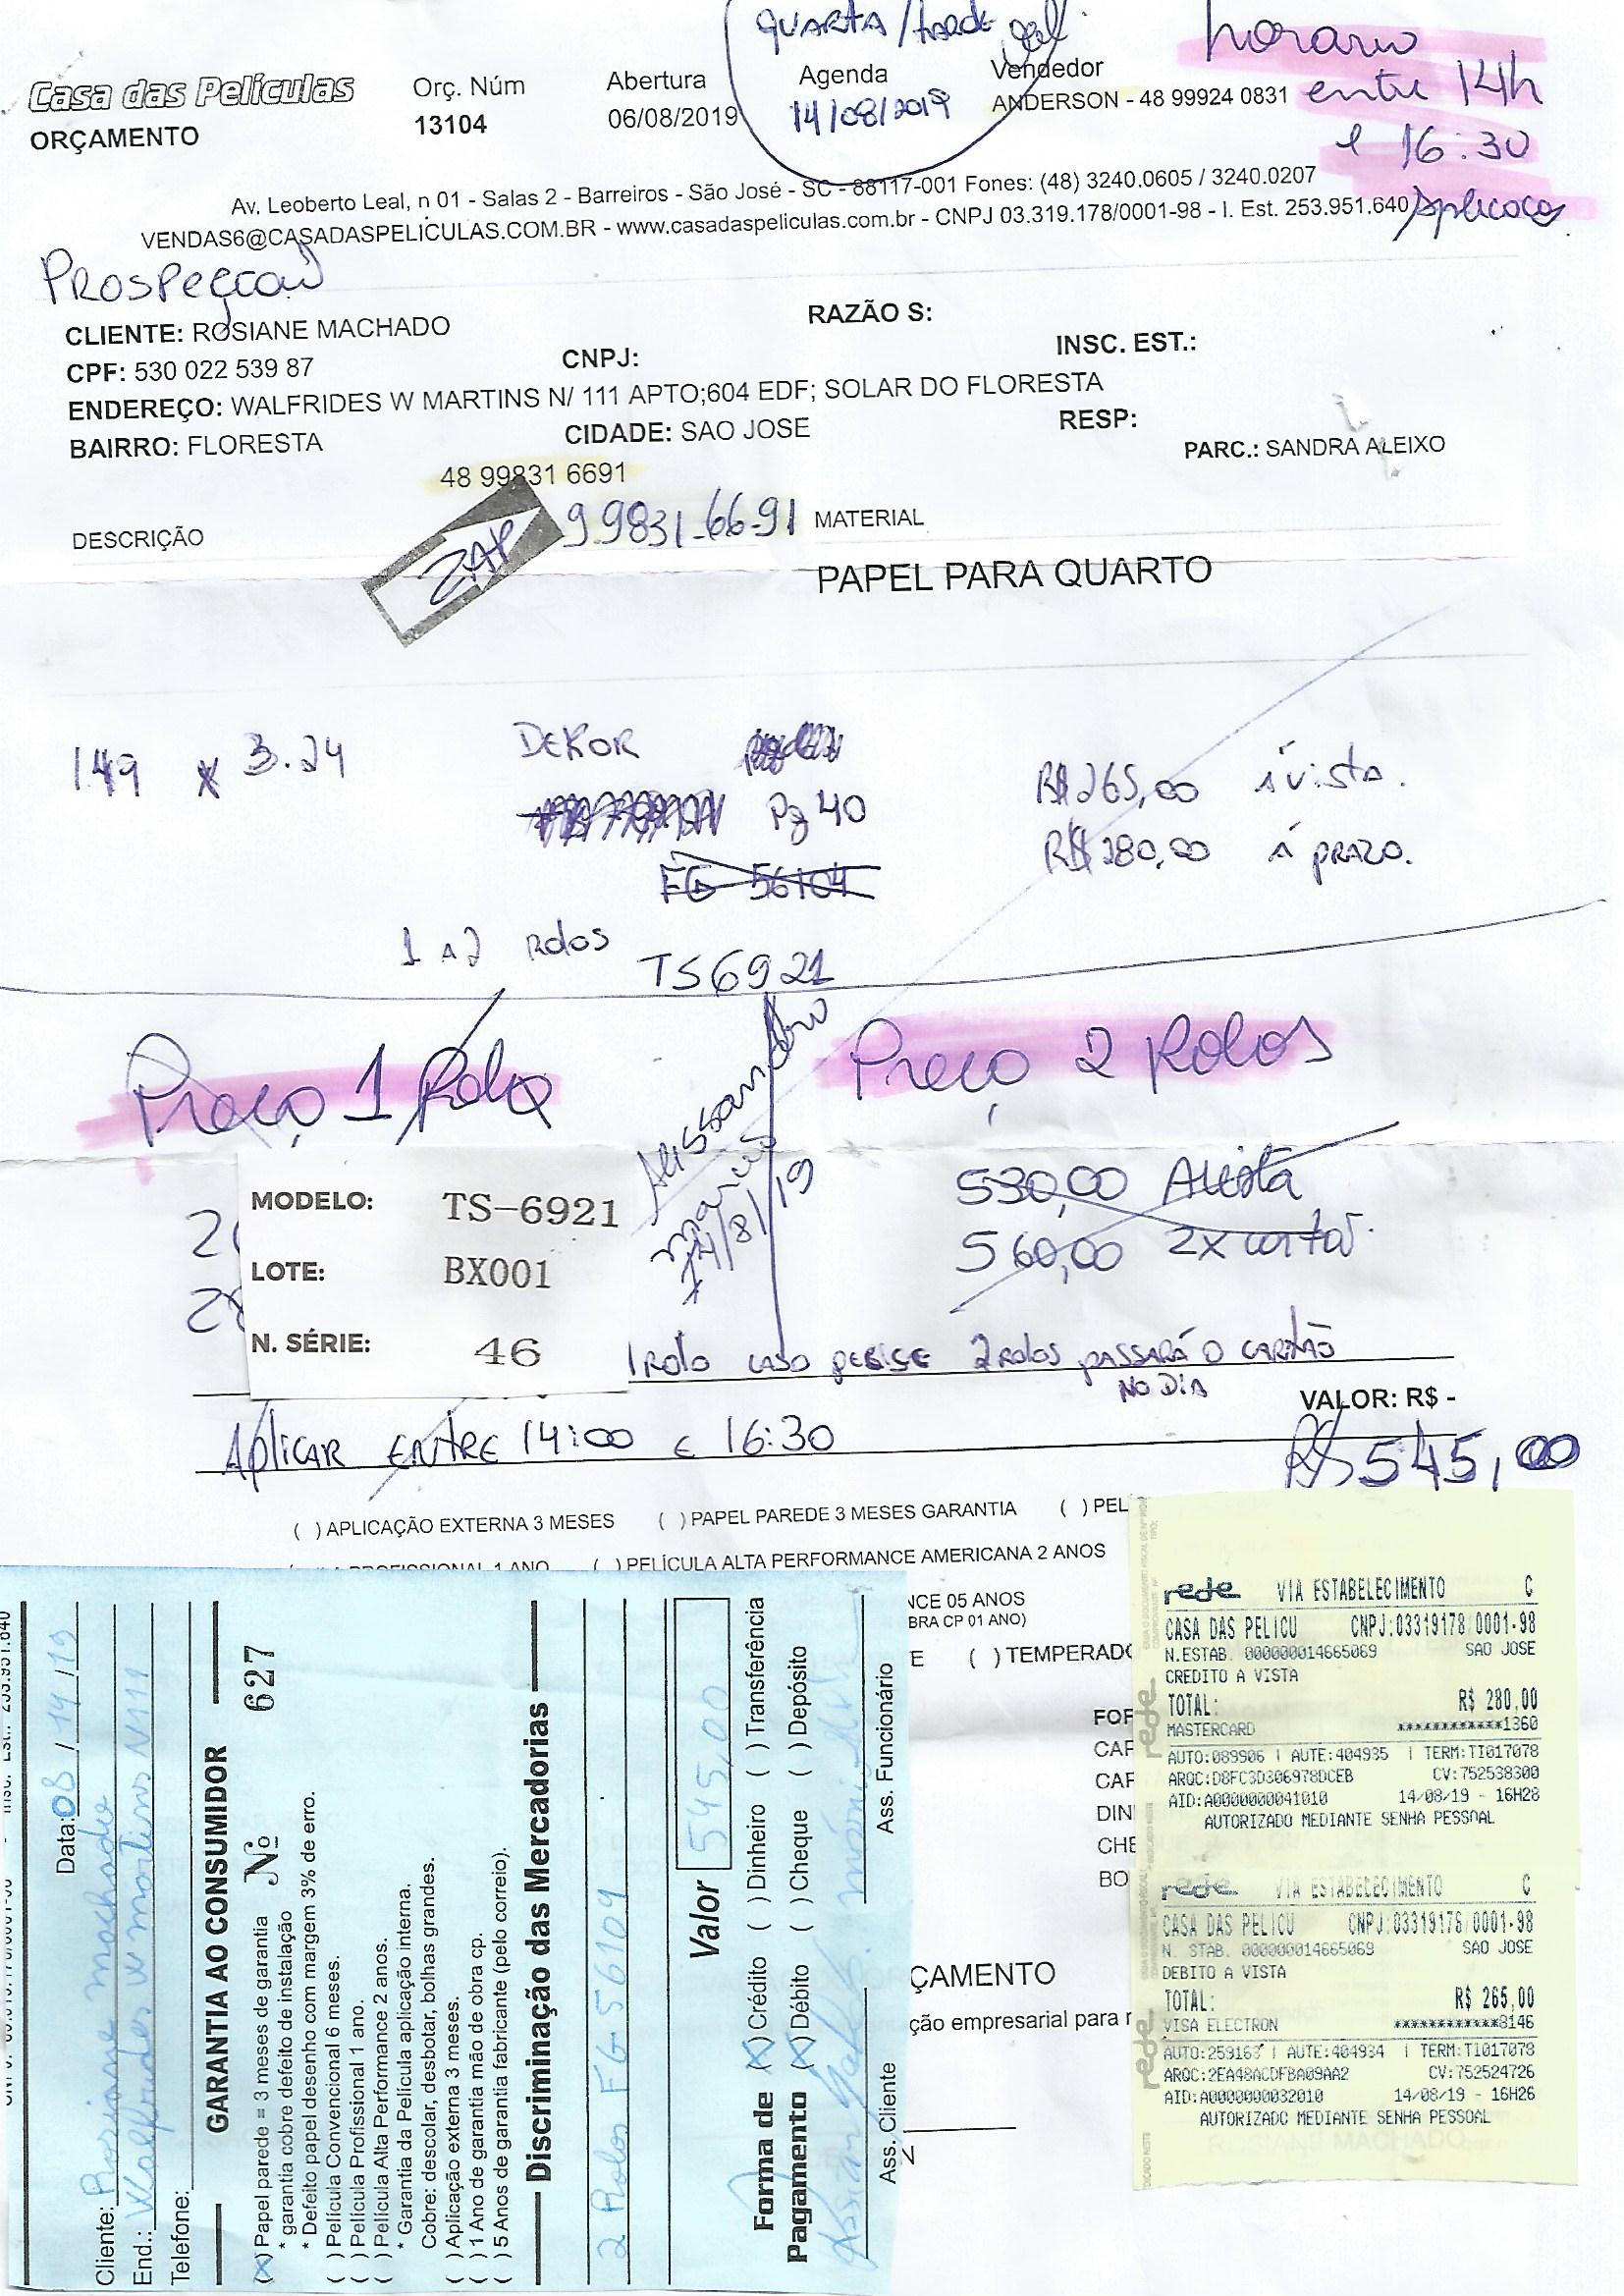 QUARTA / tARDE
horario
entre 14h
e 16:30
Casa das Películas
ORÇAMENTO
Orç. Núm
13104
Abertura
06/08/2019
Agenda
14/08/2019
Vendedor
ANDERSON - 48 99924 0831
Av. Leoberto Leal, n 01 - Salas 2 - Barreiros - São José - SC - 88117-001 Fones: (48) 3240.0605 / 3240.0207
VENDAS6@CASADASPELICULAS.COM.BR - www.casadaspeliculas.com.br - CNPJ 03.319.178/0001-98 - I. Est. 253.951.640
CLIENTE: ROSIANE MACHADO
RAZÃO S:
CPF: 530 022 539 87
CNPJ:
INSC. EST.:
ENDEREÇO: WALFRIDES W MARTINS N/ 111 APTO;604 EDF; SOLAR DO FLORESTA
BAIRRO: FLORESTA
CIDADE: SAO JOSE
RESP:
PARC.: SANDRA ALEIXO
48 99831 6691
ZAP
99831-6691
DESCRIÇÃO
MATERIAL
PAPEL PARA QUARTO
149 x 3.24
DEKOR
Pg 40
FG 56104
R$ 265,00 à vista.
R$ 280,00 à PRAZO.
1 A 2 Rolos
TS6921
Preço 1 Rolo
Preço 2 Rolos
14/8/19
530,00 Avista
560,00 2x cartão.
MODELO: TS-6921
LOTE: BX001
N. SÉRIE: 46
1 Rolo caso precise 2 Rolos PASSARÁ O CARTÃO
NO DIA
VALOR: R$ -
R$ 545,00
Aplicar ENTRE 14:00 e 16:30
( ) APLICAÇÃO EXTERNA 3 MESES
( ) PAPEL PAREDE 3 MESES GARANTIA
( ) PEL
PROFISSIONAL 1 ANO
( ) PELÍCULA ALTA PERFORMANCE AMERICANA 2 ANOS
NCE 05 ANOS
BRA CP 01 ANO)
E ( ) TEMPERADO
FOR
CAR
CAR
DIN
CHE
BO
ÇAMENTO
ção empresarial para
Data: 08 / 14 / 19
Cliente: Rosiane machado
End.: Walfrides w martins N111
Telefone:
GARANTIA AO CONSUMIDOR
Nº 627
(X) Papel parede = 3 meses de garantia
* garantia cobre defeito de instalação
* Defeito papel desenho com margem 3% de erro.
( ) Película Convencional 6 meses.
( ) Película Profissional 1 ano.
( ) Película Alta Performance 2 anos.
* Garantia da Película aplicação interna.
Cobre: descolar, desbotar, bolhas grandes.
( ) Aplicação externa 3 meses.
( ) 1 Ano de garantia mão de obra cp.
( ) 5 Anos de garantia fabricante (pelo correio).
Discriminação das Mercadorias
2 Rolos FG 56109
Valor 545,00
Forma de Pagamento
(X) Crédito ( ) Dinheiro ( ) Transferência
(X) Débito ( ) Cheque ( ) Depósito
Ass. Cliente
Ass. Funcionário
rede VIA ESTABELECIMENTO C
CASA DAS PELICU CNPJ:03319178/0001-98
N.ESTAB. 000000014665069 SAO JOSE
CREDITO A VISTA
TOTAL: R$ 280,00
MASTERCARD ************1360
AUTO:089906 | AUTE:404935 | TERM:TI017078
ARQC:D8FC3D306978DCEB CV:752538300
AID:A0000000041010 14/08/19 - 16H28
AUTORIZADO MEDIANTE SENHA PESSOAL
rede VIA ESTABELECIMENTO C
CASA DAS PELICU CNPJ:03319178/0001-98
N. STAB. 000000014665069 SAO JOSE
DEBITO A VISTA
TOTAL: R$ 265,00
VISA ELECTRON ************8146
AUTO:259163 | AUTE:404934 | TERM:TI017078
ARQC:2EA48ACDFBA09AA2 CV:752524726
AID:A0000000032010 14/08/19 - 16H26
AUTORIZADO MEDIANTE SENHA PESSOAL